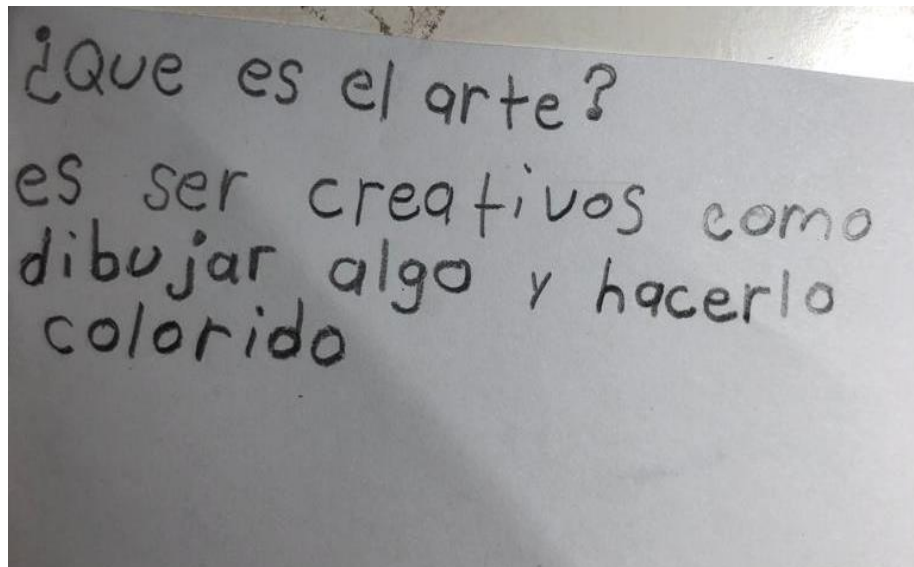 ¿Que es el arte?
es ser creativos como
dibujar algo y hacerlo
colorido